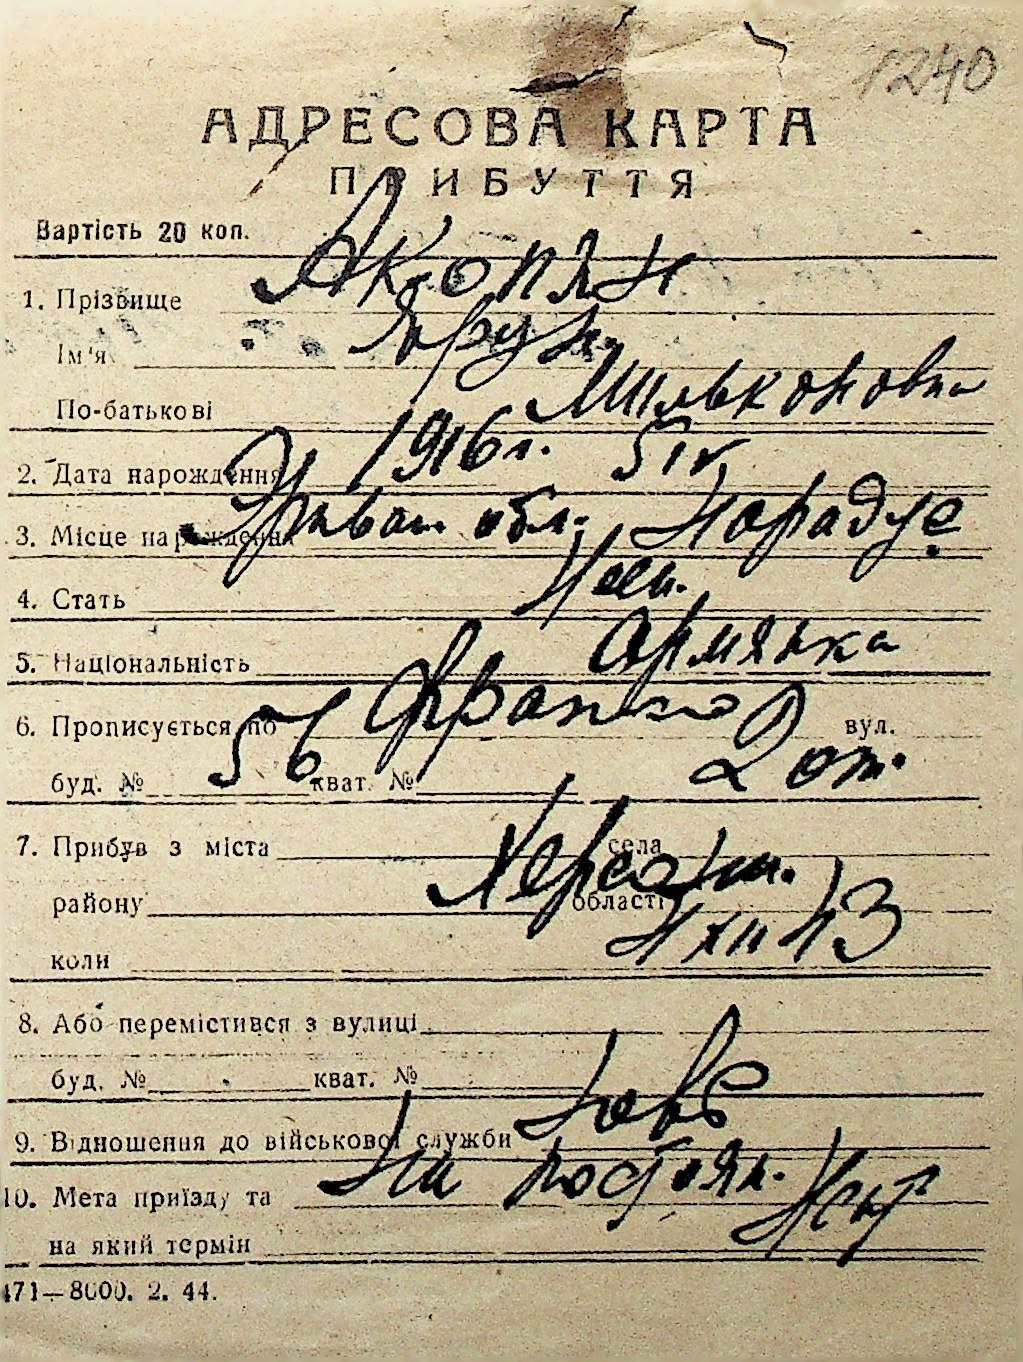 1240
АДРЕСОВА КАРТА
ПРИБУТТЯ
Вартість 20 коп.
1. Прізвище Акопян
Ім'я
По-батькові Мильконовна
2. Дата нарождення 1916 г. 5 IV
3. Місце нарождення обл. Норадуз
4. Стать жен.
5. Національність Армянка
6. Прописується по Франко вул.
буд. № 56 кват. № 2 от.
7. Прибув з міста Херсон села
району области
коли 4 XII 43
8. Або перемістився з вулиці
буд. № кват. №
9. Відношення до військової служби
10. Мета приїзду та На постоян.
на який термін
471—8000. 2. 44.